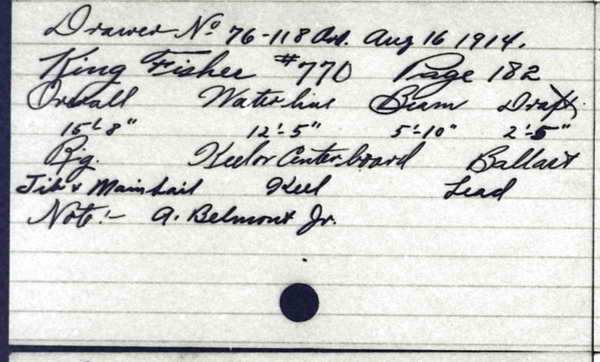 Drawer No 76-118 Ord. Aug 16 1914.
King Fisher #770 Page 182
Overall Waterline Beam Draft
15'-8" 12'-5" 5'-10" 2'-5"
Rig. Keel or Centerboard Ballast
Jib & Mainsail Keel Lead
Note:- A. Belmont Jr.